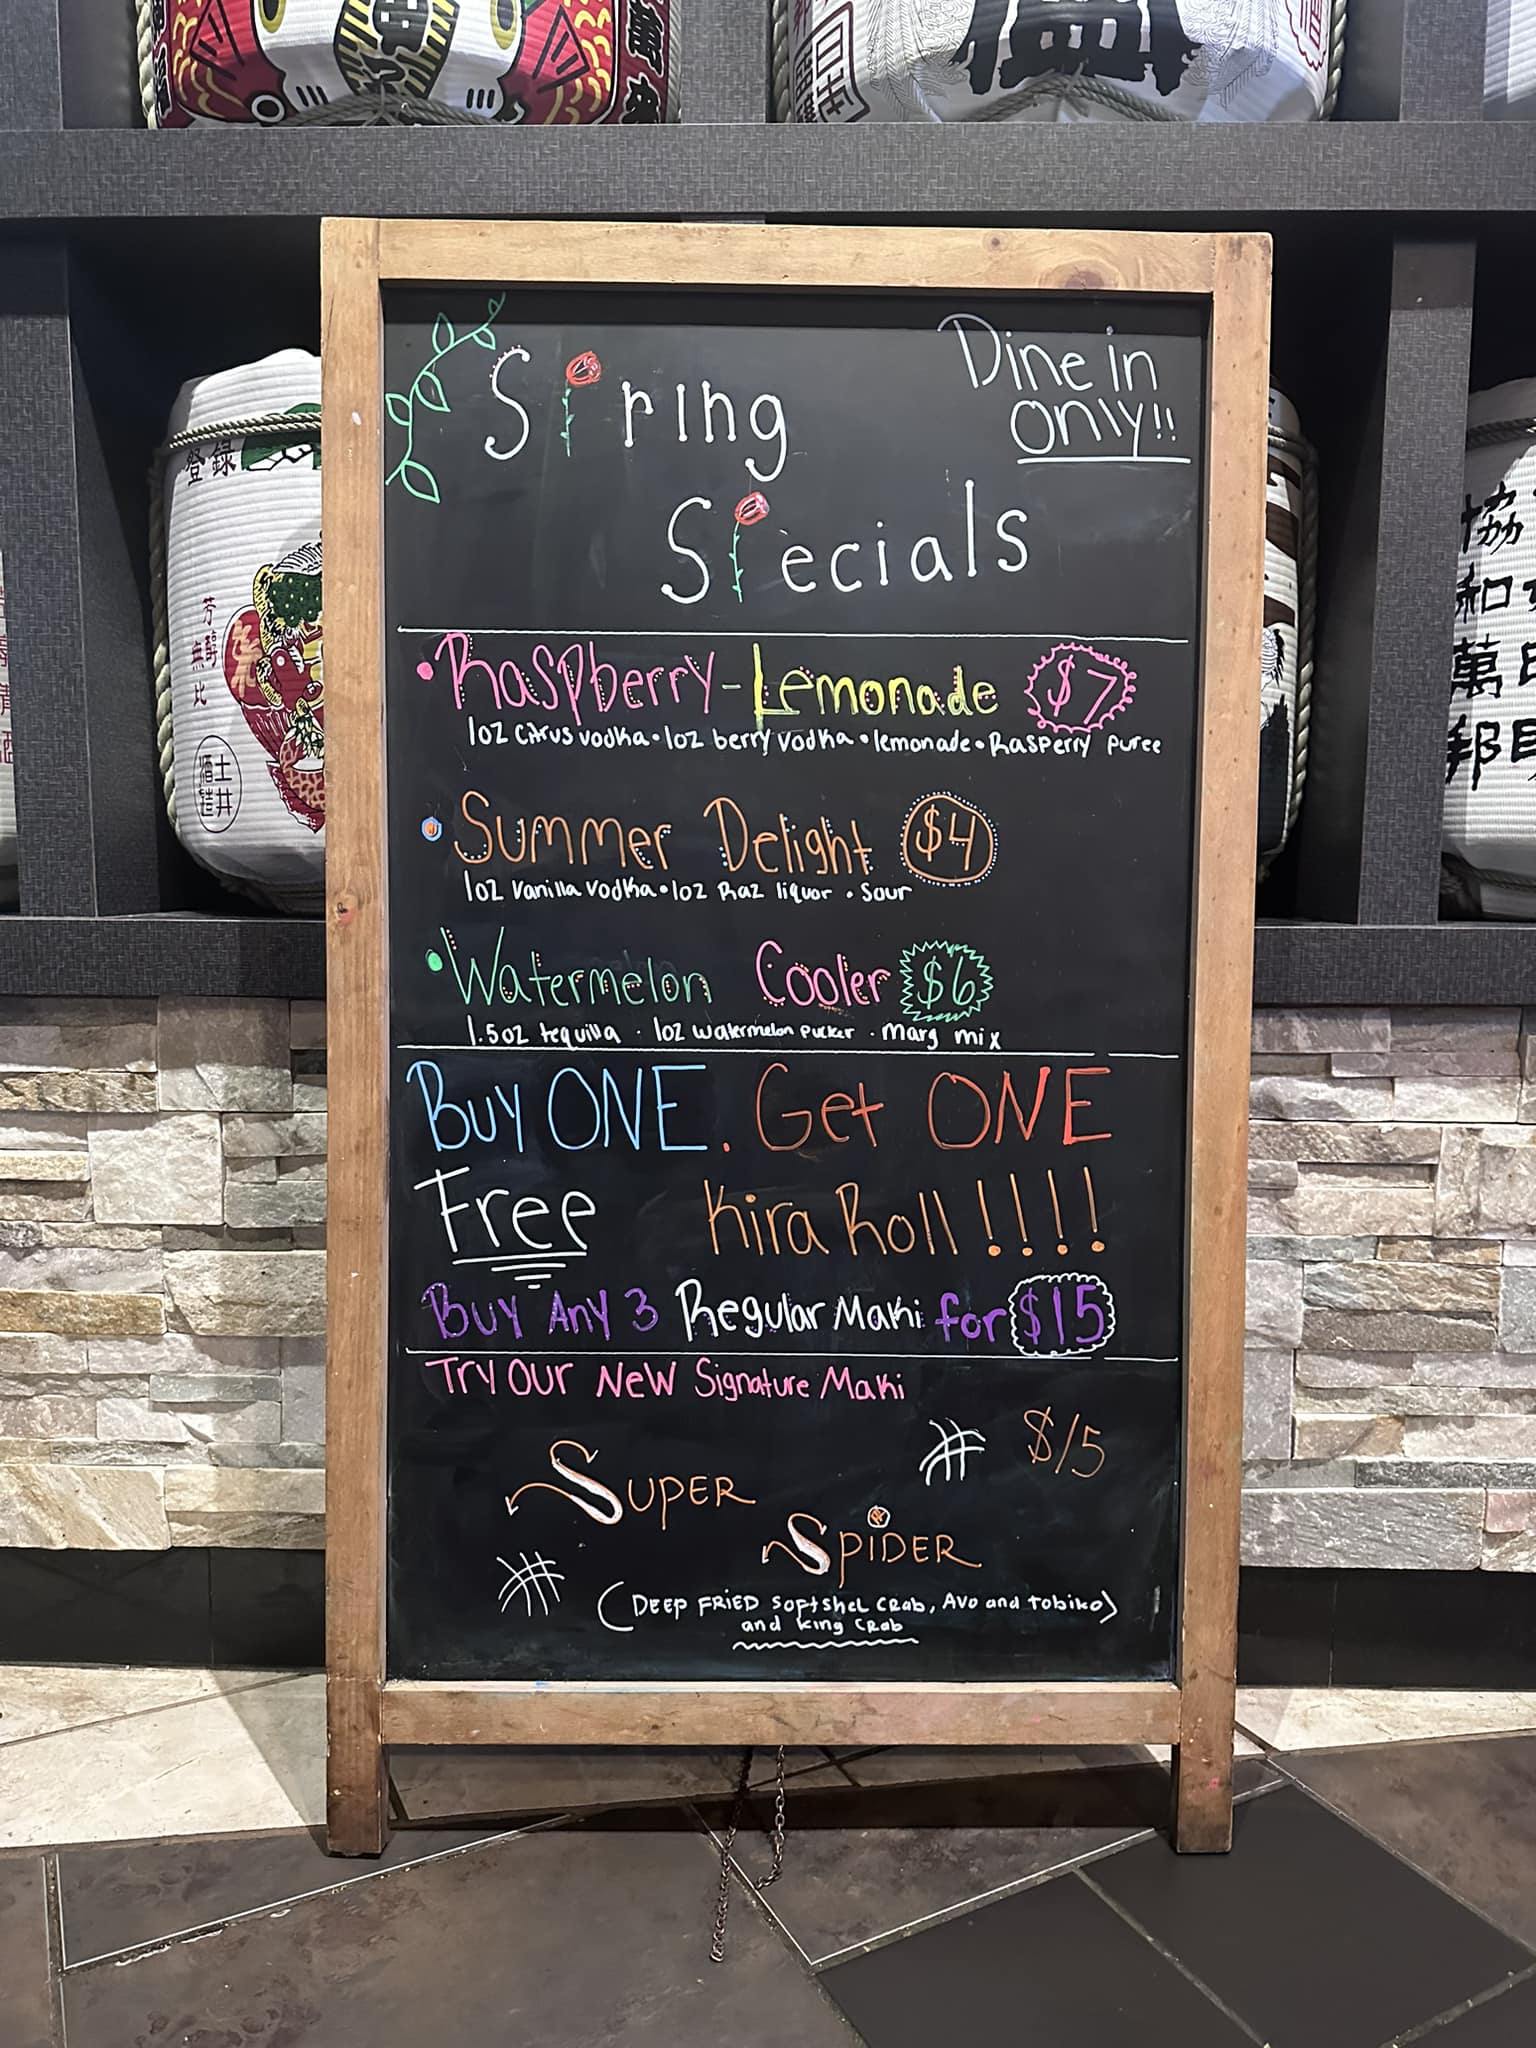 Spring
Dine in
only!!
Specials
Raspberry-Lemonade $7
1oz citrus vodka • 1oz berry vodka • lemonade • Rasperry puree
Summer Delight $4
1oz vanilla vodka • 1oz Raz liquor • sour
Watermelon Cooler $6
1.5oz tequilla · 1oz watermelon pucker · marg mix
Buy ONE. Get ONE
Free Kira Roll!!!!
Buy Any 3 Regular Maki for $15
Try our New Signature Maki
$15
Super
Spider
(Deep Fried softshel crab, Avo and tobiko)
and king crab
登録
芳醇
無比
土井
酒造
協
和
萬
邦